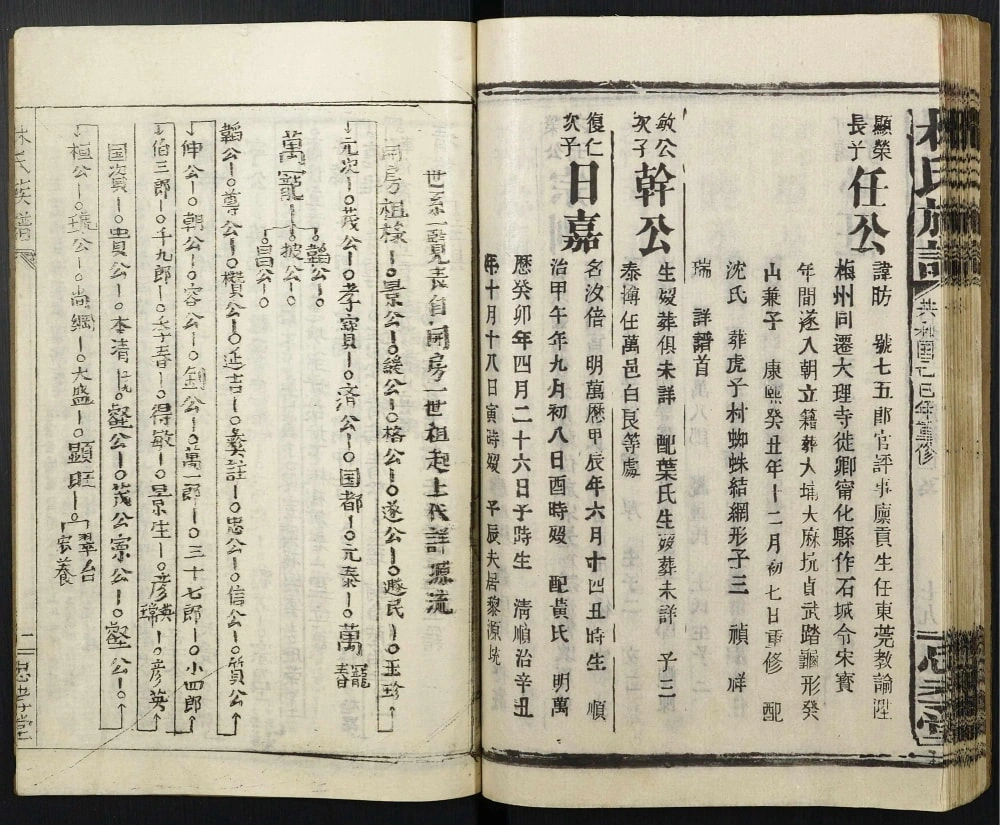 林氏族譜
共和国己巳年重修
顯榮長子
任公
諱昉 號七五郎官評事廪貢生任東莞教諭陞
梅州同遷大理寺徙卿甯化縣作石城令宋寳
年間遂入朝立籍葬大埔大麻坑貞武踏龜形癸
山兼子 康熙癸丑年十二月初七日重修 配
沈氏 葬虎子村蜘蛛結網形子三 禎 祥
瑞 詳譜首
敏公次子
幹公
生娿葬俱未詳 配葉氏生娿葬未詳 子三
泰摶任萬邑白良等處
復仁次子
日嘉
名汝倍 明萬歷甲辰年六月十四丑時生 順
治甲午年九月初八日酉時娿 配黃氏 明萬
歷癸卯年四月二十六日子時生 清順治辛丑
年十月十八日寅時娿 予辰夫居黎源坑
世系一覽表自開房一世祖起上代詳源流
開房祖樣 景公 諼公 格公 遂公 遯民 玉珍
元次 茂公 孝寳 濟公 国都 元泰 萬寵 萬春
萬寵 韜公 披公 昌公
韜公 尊公 櫕公 延吉 彛註 忠公 信公 質公
伸公 朝公 容公 釗公 萬一郎 三十七郎 小四郎
伯三郎 千九郎 壬春 得敏 景生 彦英 彦瑞 彦英
国資 貴公 本清 仁九 壑公 茂公 宗公 壑公
植公 琉公 尚綱 大盛 顯旺 翠台 宏養
林氏族譜
二
忠孝堂